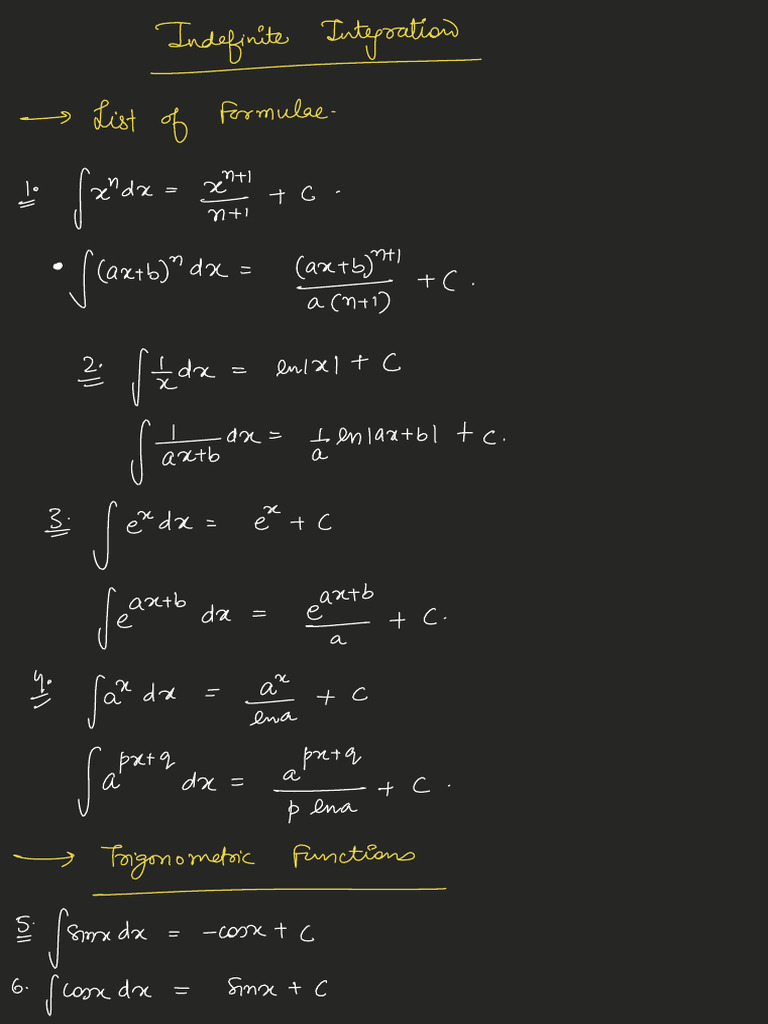 Indefinite Integration
→ List of Formulae.
1. ∫xⁿdx = xⁿ⁺¹/n+1 + C.
• ∫(ax+b)ⁿ dx = (ax+b)ⁿ⁺¹/a(n+1) + C.
2. ∫1/x dx = ln|x| + C
∫1/ax+b dx = 1/a ln|ax+b| + C.
3. ∫eˣdx = eˣ + C
∫e^ax+b dx = e^ax+b/a + C.
4. ∫aˣ dx = aˣ/lna + C
∫a^px+q dx = a^px+q/p lna + C.
→ Trigonometric Functions
5. ∫sinx dx = -cosx + C
6. ∫cosx dx = sinx + C